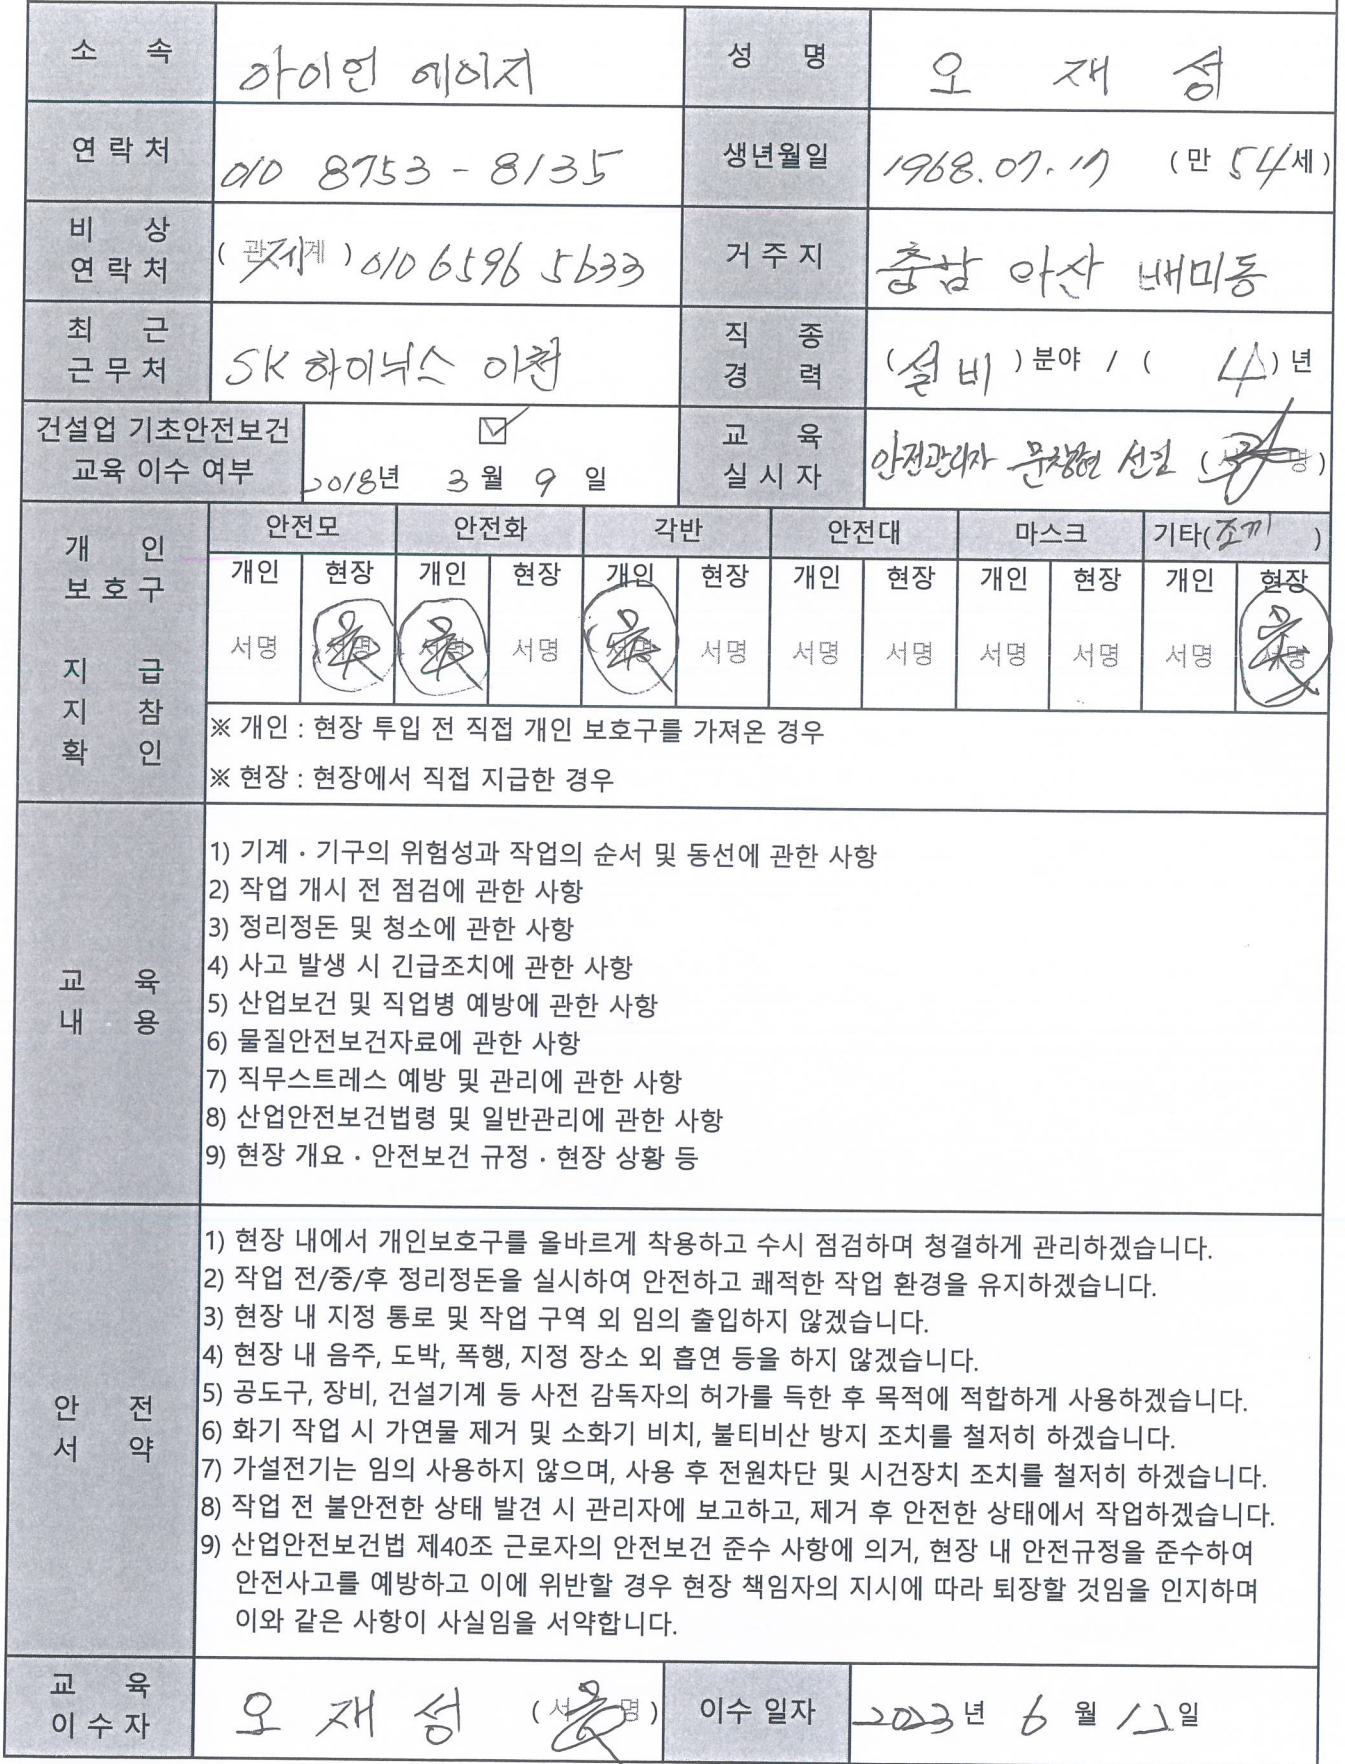 소 속 아이언 에이지 성 명 오 재 성
연 락 처 010 8753 - 8135 생년월일 1968.07.17 (만 54세)
비 상
연 락 처 (관계) 010 6596 5633 거 주 지 충남 아산 배미동
최 근
근 무 처 SK 하이닉스 이천 직 종
경 력 (설비) 분야 / ( 4) 년
건설업 기초안전보건
교육 이수 여부 2018년 3월 9일 교 육
실 시 자 안전관리자 (서명)
개 인
보 호 구
지 급
지 참
확 인
안전모 안전화 각반 안전대 마스크 기타(조끼)
개인 현장 개인 현장 개인 현장 개인 현장 개인 현장 개인 현장
서명 서명 서명 서명 서명 서명 서명 서명 서명 서명 서명 서명
※ 개인 : 현장 투입 전 직접 개인 보호구를 가져온 경우
※ 현장 : 현장에서 직접 지급한 경우
교 육
내 용
1) 기계 · 기구의 위험성과 작업의 순서 및 동선에 관한 사항
2) 작업 개시 전 점검에 관한 사항
3) 정리정돈 및 청소에 관한 사항
4) 사고 발생 시 긴급조치에 관한 사항
5) 산업보건 및 직업병 예방에 관한 사항
6) 물질안전보건자료에 관한 사항
7) 직무스트레스 예방 및 관리에 관한 사항
8) 산업안전보건법령 및 일반관리에 관한 사항
9) 현장 개요 · 안전보건 규정 · 현장 상황 등
안 전
서 약
1) 현장 내에서 개인보호구를 올바르게 착용하고 수시 점검하며 청결하게 관리하겠습니다.
2) 작업 전/중/후 정리정돈을 실시하여 안전하고 쾌적한 작업 환경을 유지하겠습니다.
3) 현장 내 지정 통로 및 작업 구역 외 임의 출입하지 않겠습니다.
4) 현장 내 음주, 도박, 폭행, 지정 장소 외 흡연 등을 하지 않겠습니다.
5) 공도구, 장비, 건설기계 등 사전 감독자의 허가를 득한 후 목적에 적합하게 사용하겠습니다.
6) 화기 작업 시 가연물 제거 및 소화기 비치, 불티비산 방지 조치를 철저히 하겠습니다.
7) 가설전기는 임의 사용하지 않으며, 사용 후 전원차단 및 시건장치 조치를 철저히 하겠습니다.
8) 작업 전 불안전한 상태 발견 시 관리자에 보고하고, 제거 후 안전한 상태에서 작업하겠습니다.
9) 산업안전보건법 제40조 근로자의 안전보건 준수 사항에 의거, 현장 내 안전규정을 준수하여
안전사고를 예방하고 이에 위반할 경우 현장 책임자의 지시에 따라 퇴장할 것임을 인지하며
이와 같은 사항이 사실임을 서약합니다.
교 육
이 수 자 오 재 성 (서명) 이수 일자 2023년 6월 12일